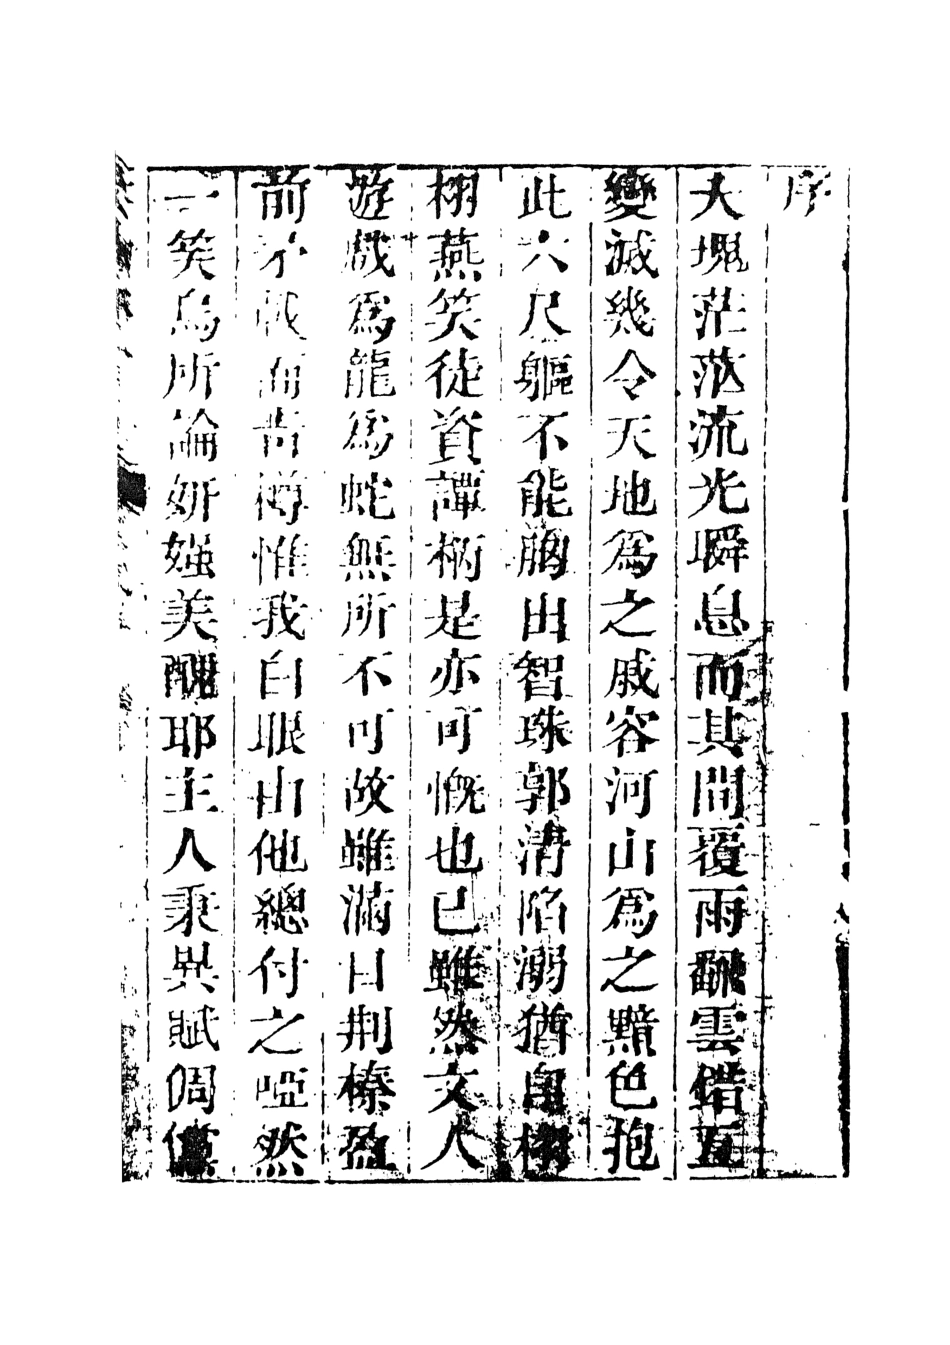 序
大塊茫茫流光瞬息而其間覆雨翻雲借互
變滅幾令天地為之戚容河山為之黯色抱
此六尺軀不能胸出智珠郭清陷溺猶自栩
栩燕笑徒資譚柄是亦可慨也已雖然文人
遊戲為龍為蛇無所不可故雖滿目荆榛盈
前矛戟而青樽惟我白眼由他總付之啞然
一笑烏所論妍媸美醜耶主人秉異賦倜儻